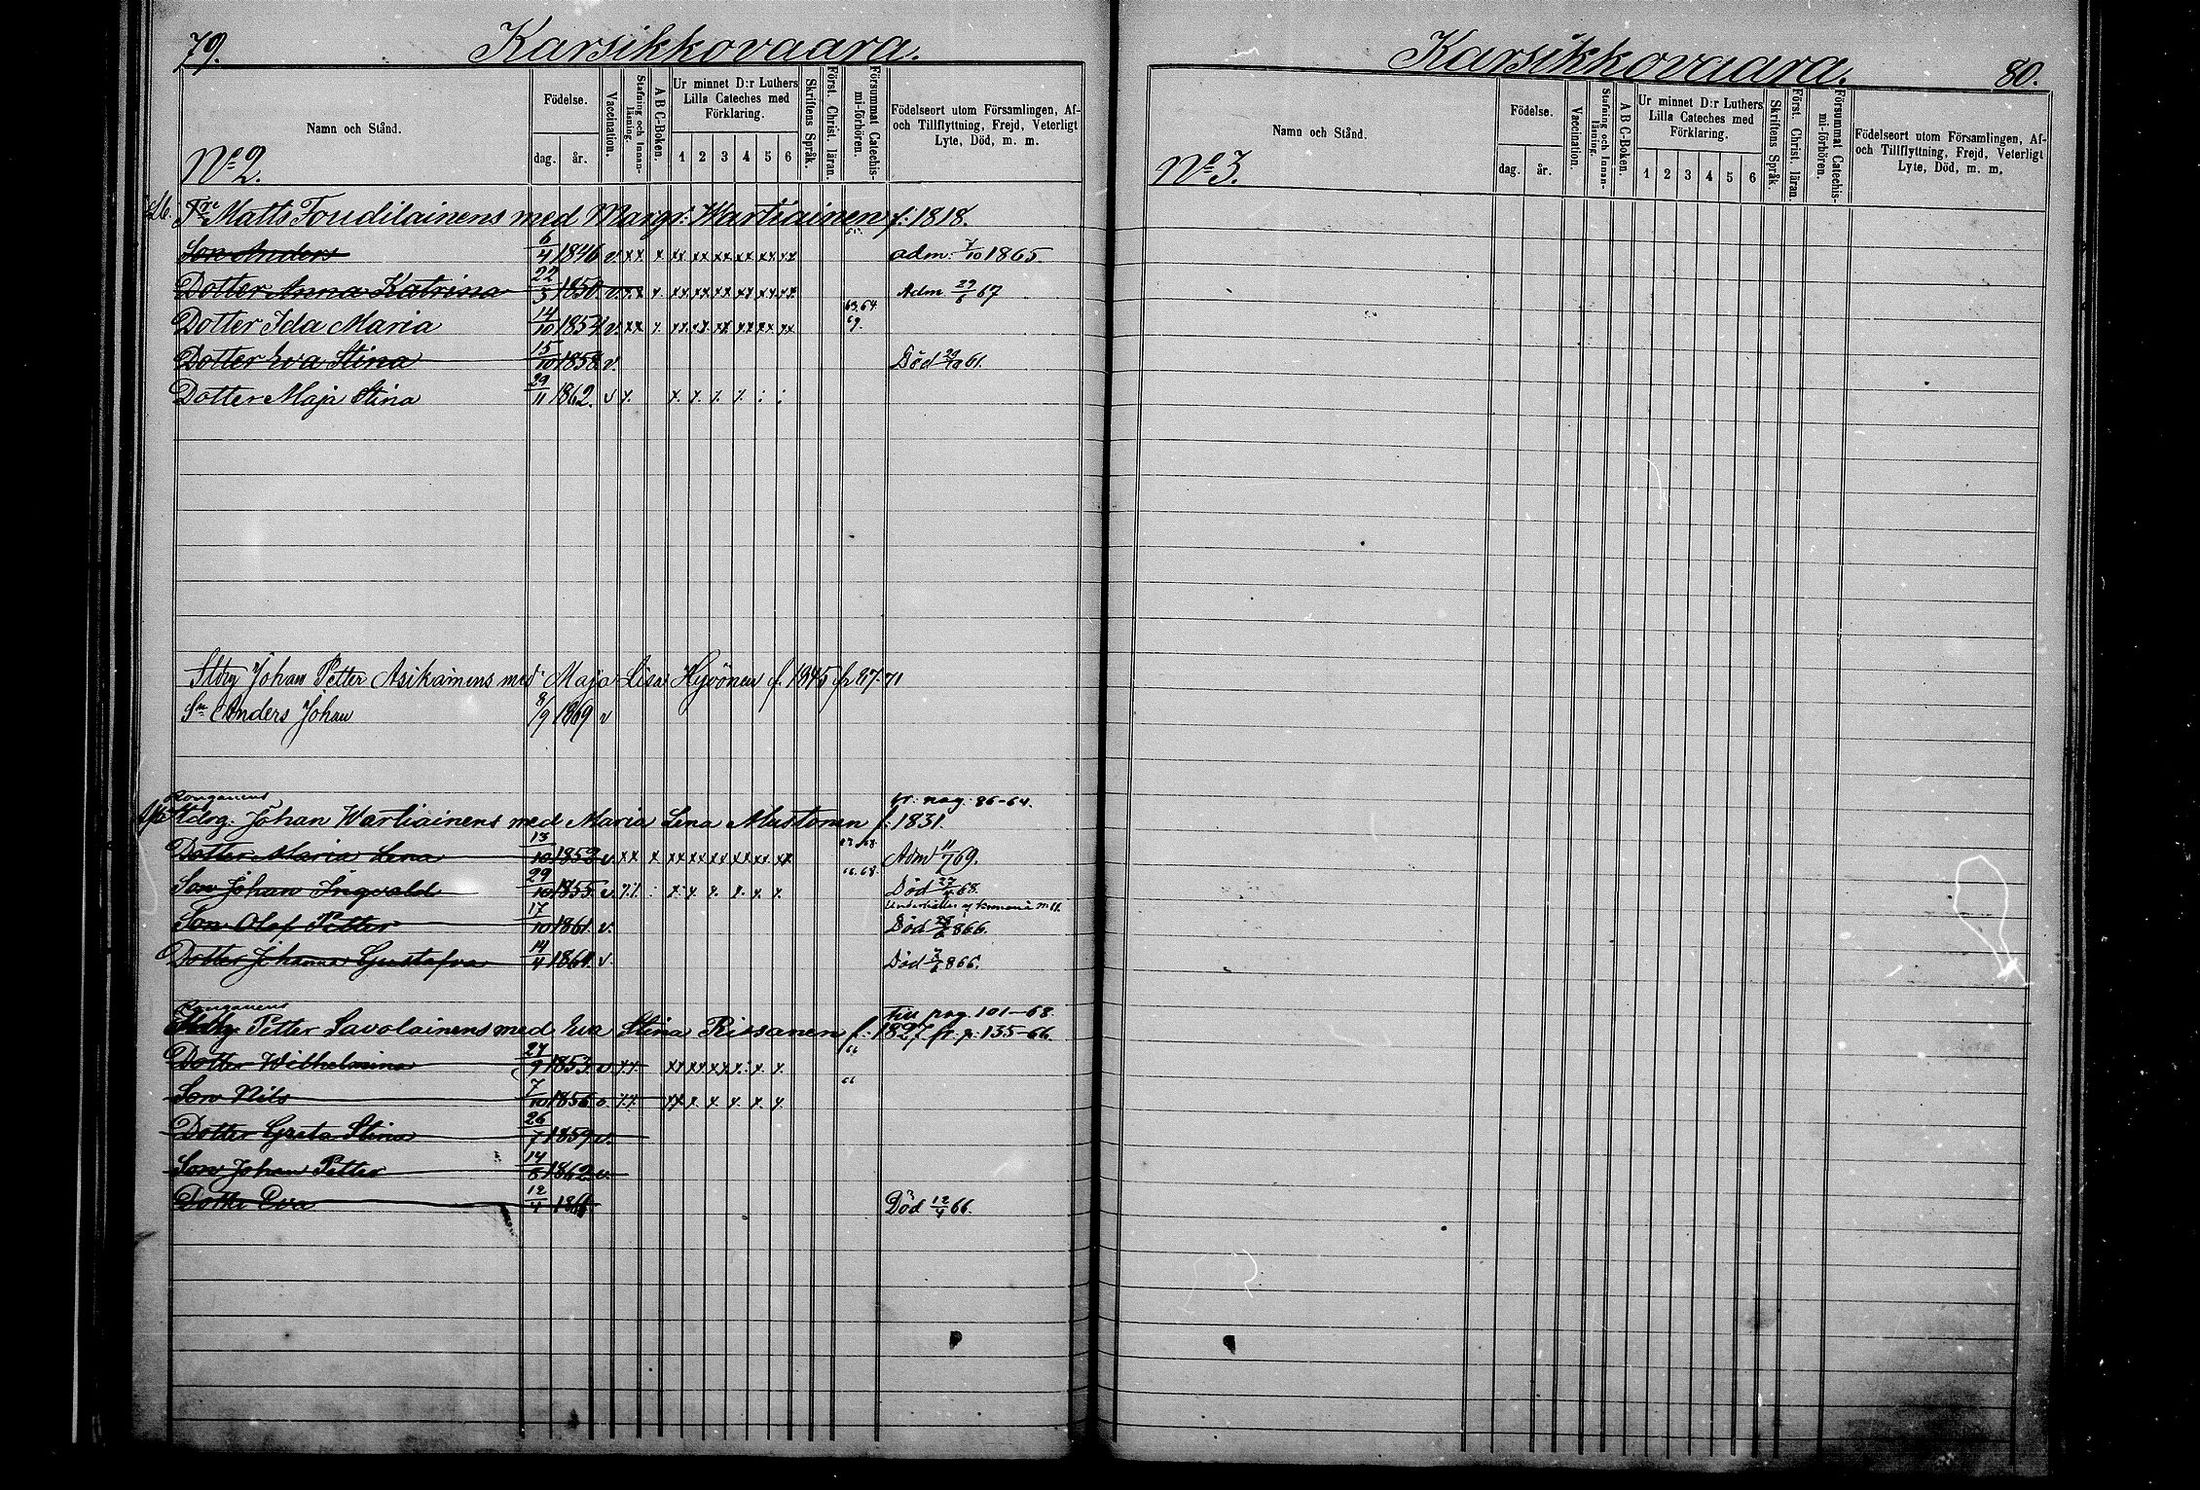 79.
Karsikkovaara.
Namn och Stånd.
Födelse.
dag. år.
Vaccination.
Stafning och Innan-läsning.
A B C-Boken.
Ur minnet D:r Luthers Lilla Cateches med Förklaring.
1 2 3 4 5 6
Skriftens Språk.
Först. Christ. läran.
Försummat Catechis-mi-förhören.
Födelseort utom Församlingen, Af- och Tillflyttning, Frejd, Veterligt Lyte, Död, m. m.
No 2.
Matts Toudilainens med Margr: Wartiainen f: 1818.
Son Anders 6/4 1846 v xx x xx xx xx xx xx xx adm: 1865
Dotter Anna Katrina 22/3 1850 v. Adm 29/6 67
63.64
Dotter Ida Maria 14/10 1854 v. xx 69.
Dotter Eva Stina 15/10 1858 v. Död 61.
Dotter Maja Stina 29/11 1862. v x. x. x. x. x : :
Johan Petter Asikainens med Maja Lisa Hyvönen f. 1845 fr 87.71
Sn Anders Johan 8/9 1869 v
fr: pag: 86-64.
Johan Wartiainens med Maria Lena Mustonen f: 1831.
Dotter Maria Lena 13/10 1852 v. xx x Adm 11/7 69.
Son Johan Ingvald 29/10 1855. v. x x. x. x. x. x. Död 68.
Son Olof Petter 17/10 1861. v. Död 866.
Dotter Johanna Gustafva 14/4 1864. v Död 866.
Till pag. 101-68.
Petter Savolainens med Eva Stina Rissanen f: 1827. fr: p: 135-66.
Dotter Wilhelmina 27/9 1853 v 66
Son Nils 7/10 1856 v. 66
Dotter Greta Stina 26/7 1859 v.
Son Johan Petter 14/6 1862 v.
Dotter Eva 12/4 186 Död 12/4 66.
Karsikkovaara.
80.
Namn och Stånd.
Födelse.
dag. år.
Vaccination.
Stafning och Innan-läsning.
A B C-Boken.
Ur minnet D:r Luthers Lilla Cateches med Förklaring.
1 2 3 4 5 6
Skriftens Språk
Först. Christ. läran.
Försummat Catechis-mi-förhören.
Födelseort utom Församlingen, Af- och Tillflyttning, Frejd, Veterligt Lyte, Död, m. m.
No 3.